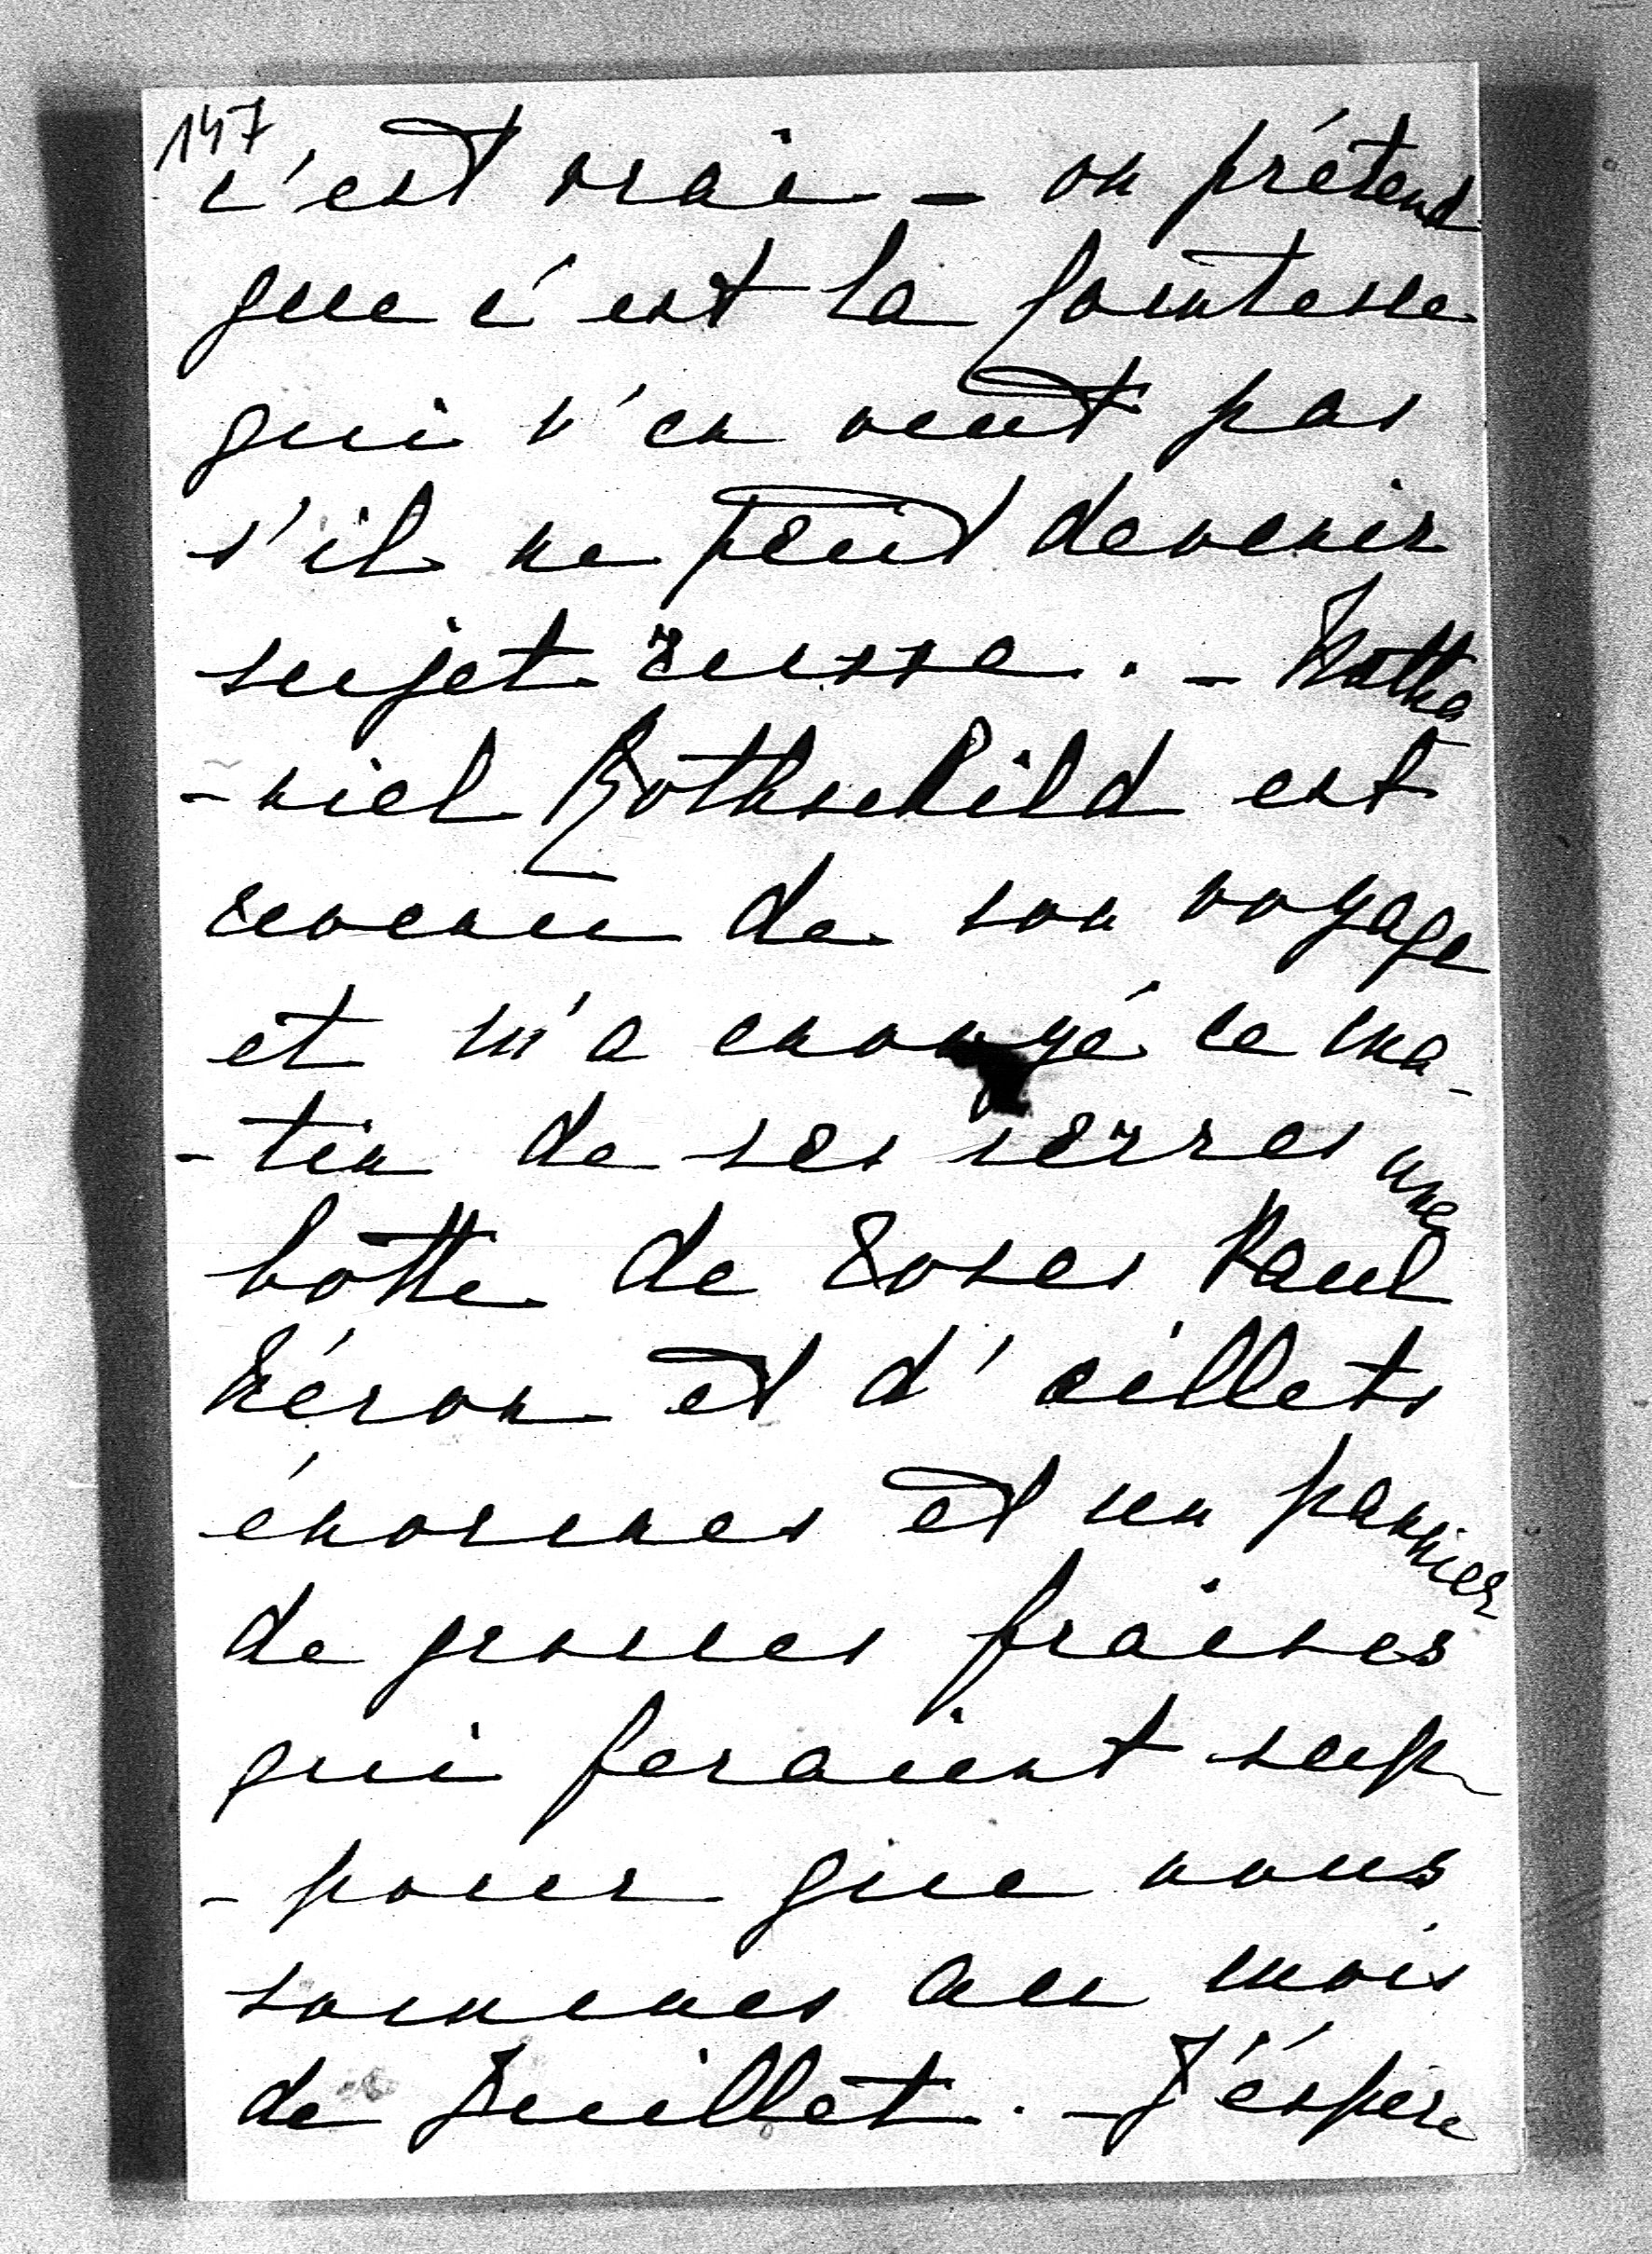 147
c'est vrai - on prétend
que c'est la Comtesse
qui n'en veut pas
s'il ne peut devenir
sujet russe. - Natha
-niel Rothschild est
revenu de son voyage
et m'a envoyé ce ma-
-tin de ses serres une
botte de roses Paul
Néron et d'œillets
énormes et un pannier
de grosses fraises
qui feraient sup
-poser que nous
sommes au mois
de Juillet. - J'éspère